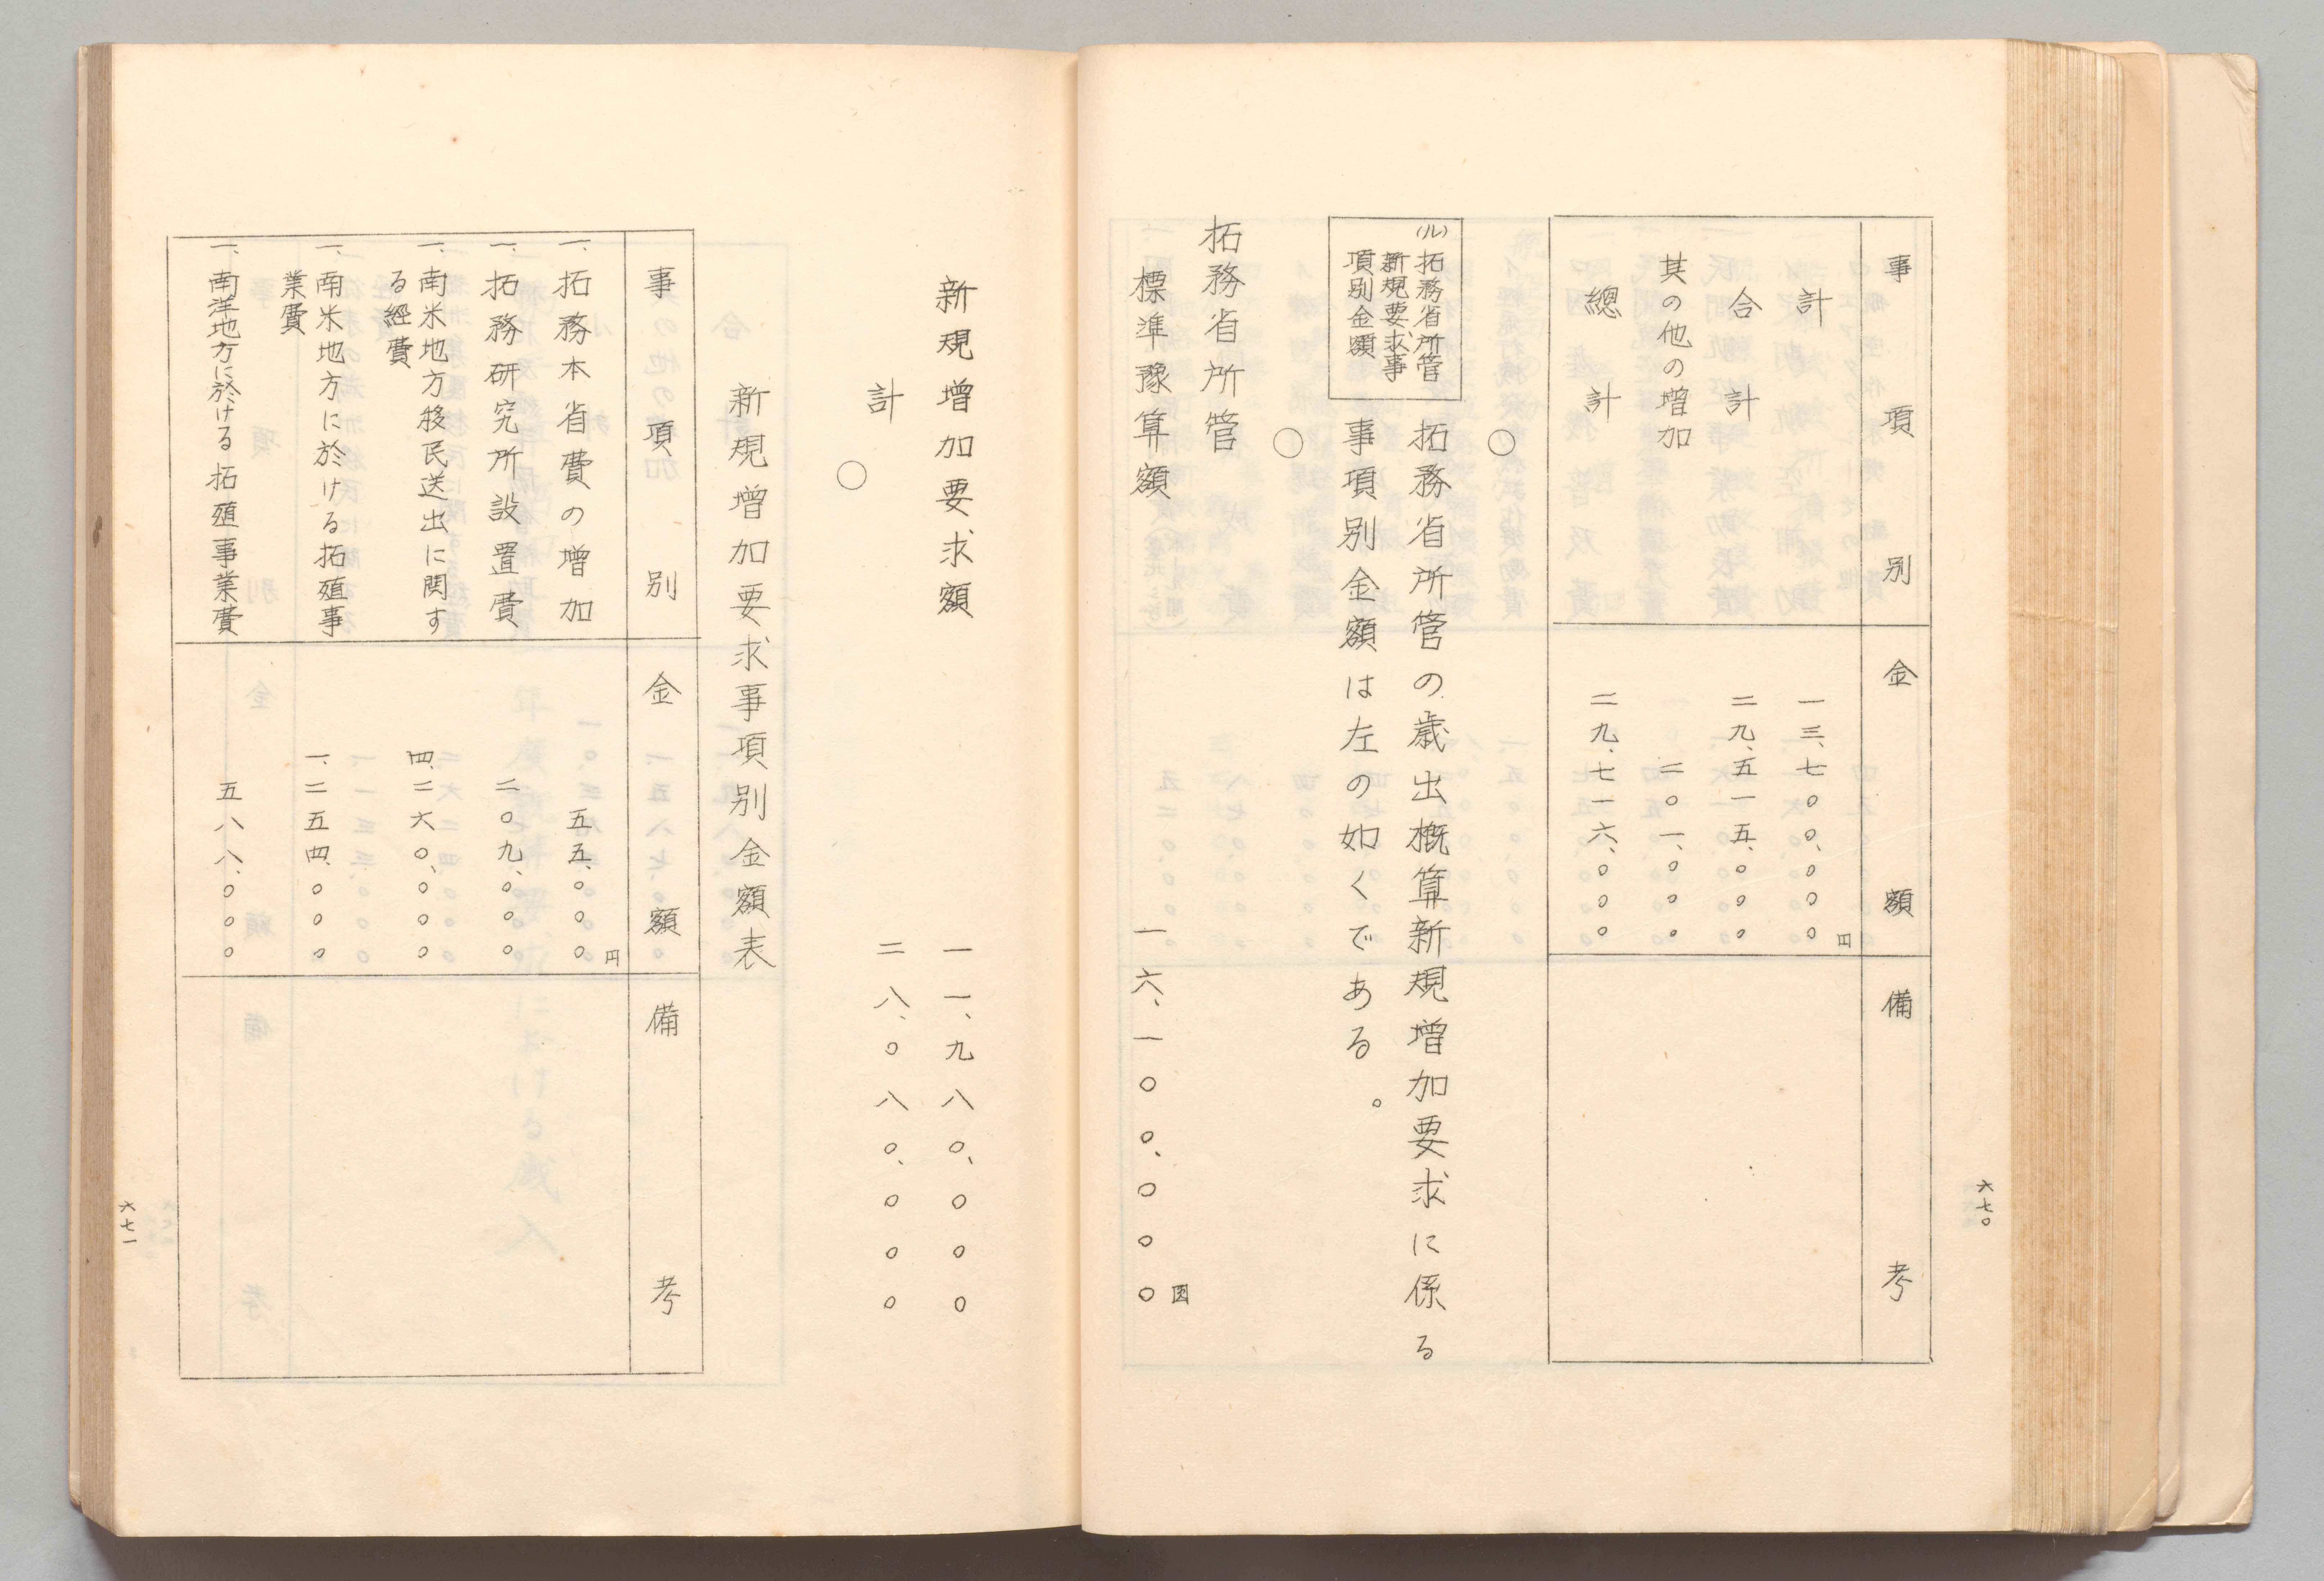 事項別 金額 備考
計 一三、七〇〇、〇〇〇円
合計 二九、五一五、〇〇〇
其の他の増加 二〇一、〇〇〇
總計 二九、七一六、〇〇〇
〇
拓務省所管の歳出概算新規増加要求に係る
事項別金額は左の如くである。
(ル)拓務省所管
新規要求事
項別金額
〇
拓務省所管
標準豫算額 一六、一〇〇、〇〇〇圓
六七〇
新規增加要求額 一一、九八〇、〇〇〇
計 二八、〇八〇、〇〇〇
〇
新規增加要求事項別金額表
事項別 金額 備考
一、拓務本省費の増加 五五、〇〇〇円
一、拓務研究所設置費 二〇九、〇〇〇
一、南米地方移民送出に関す
る経費 四、二六〇、〇〇〇
一、南米地方に於ける拓殖事
業費 一、二五四、〇〇〇
一、南洋地方に於ける拓殖事業費 五八八、〇〇〇
六七一